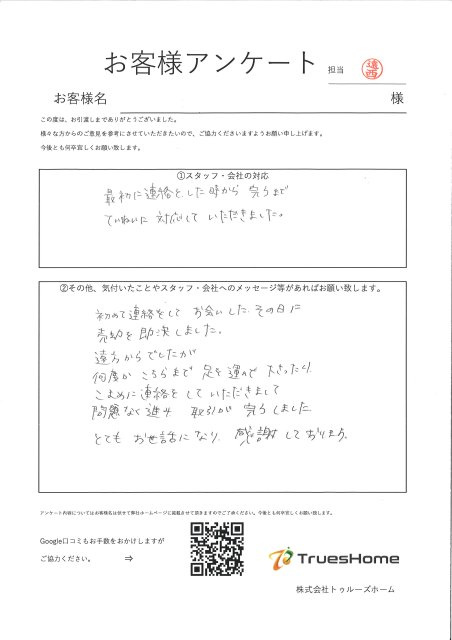 お客様アンケート
担当
お客様名
様
この度は、お引渡しまでありがとうございました。
様々な方からのご意見を参考にさせていただきたいので、ご協力くださいますようお願い申し上げます。
今後とも何卒宜しくお願い致します。
①スタッフ・会社の対応
最初に連絡をした時から 完了まで
ていねいに 対応して いただきました。
②その他、気付いたことやスタッフ・会社へのメッセージ等があればお願い致します。
初めて連絡をして お会いした その日に
売却を 即決しました。
遠方からでしたが
何度か こちらまで 足を運んで 下さったり
こまめに連絡をしていただきまして
問題なく進み 取引が 完了しました
とても お世話になり、感謝しております。
アンケート内容についてはお客様名は伏せて弊社ホームページに掲載させて頂きますのでご了承ください。今後とも何卒宜しくお願い致します。
Google口コミもお手数をおかけしますが
ご協力ください。 ⇒
TruesHome
株式会社トゥルーズホーム